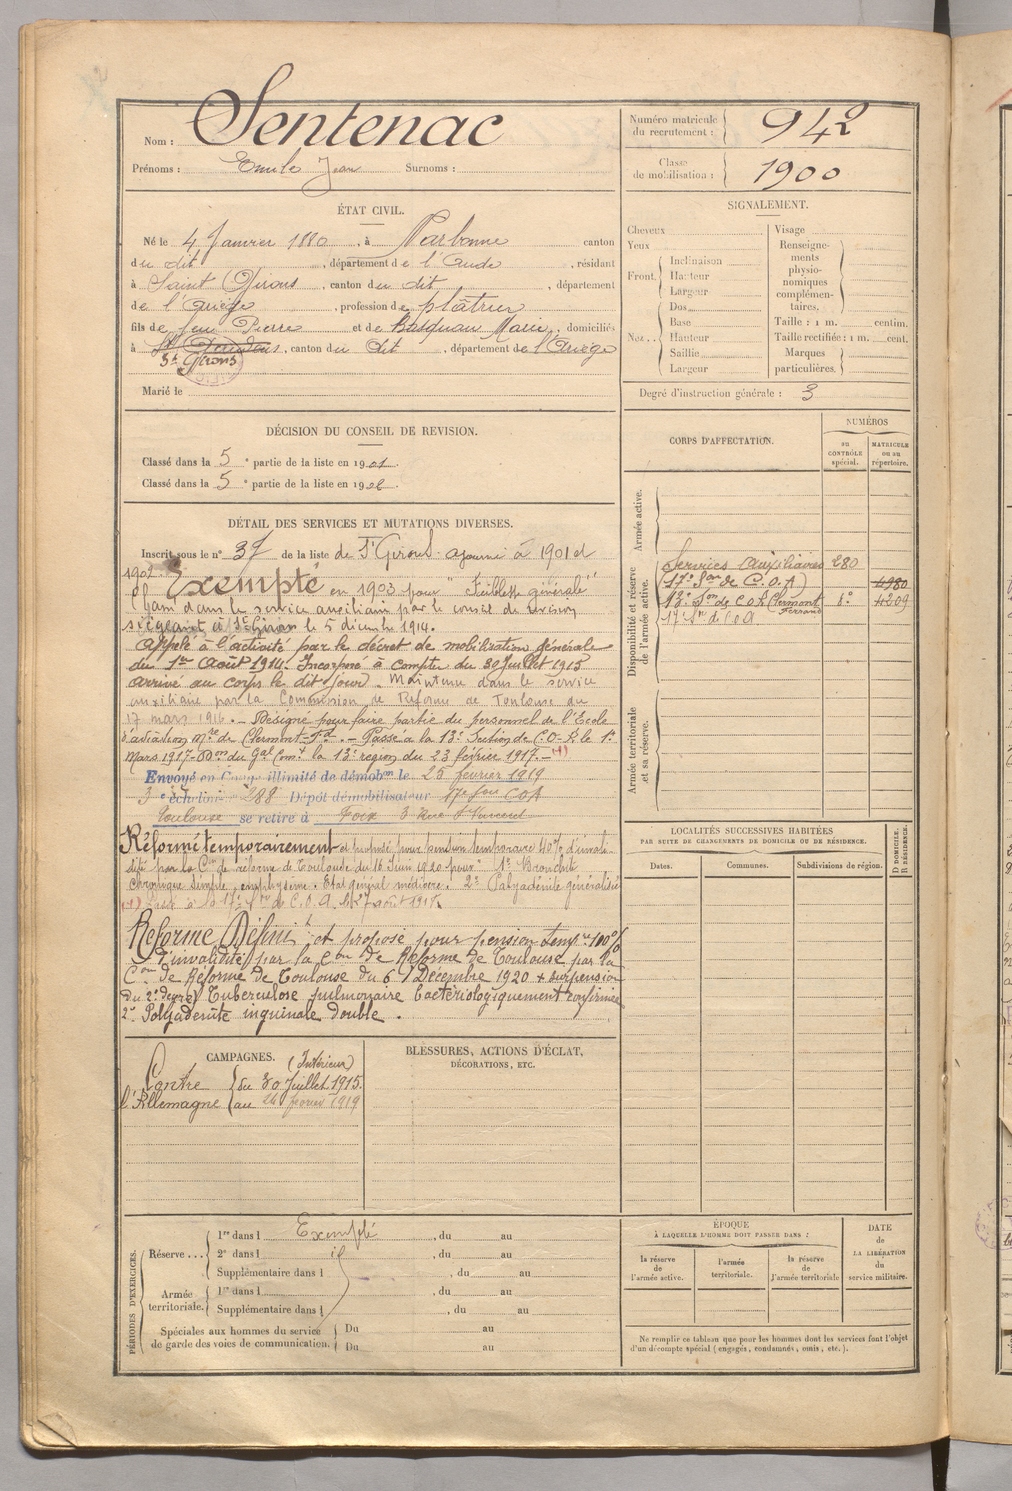 Nom : Sentenac
Prénoms : Emile Jean Surnoms :
Numéro matricule du recrutement : 942
Classe de mobilisation : 1900
ÉTAT CIVIL.
Né le 4 Janvier 1880, à Narbonne canton
du dit, département de l'Aude, résidant
à Saint Girons, canton du dit, département
de l'Ariège, profession de plâtrier
fils de feu Pierre et de Marie, domiciliés
à St Gaudens, canton du dit, département de l'Ariège
St Girons
Marié le
SIGNALEMENT.
Cheveux
Yeux
Front. Inclinaison
Hauteur
Largeur
Nez.. Dos
Base
Hauteur
Saillie
Largeur
Visage
Renseigne-
ments
physio-
nomiques
complémen-
taires.
Taille : 1 m. centim.
Taille rectifiée : 1 m. cent.
Marques
particulières.
Degré d'instruction générale : 3
DÉCISION DU CONSEIL DE REVISION.
Classé dans la 5e partie de la liste en 1901.
Classé dans la 5e partie de la liste en 1902.
DÉTAIL DES SERVICES ET MUTATIONS DIVERSES.
Inscrit sous le n° 37 de la liste de St Girons. ajourné à 1901 et
1902. Exempté en 1903 pour "Faiblesse générale"
Classé dans le service auxiliaire par le conseil de révision
siégeant à St Girons le 5 décembre 1914.
Appelé à l'activité par le décret de mobilisation générale
du 1er Août 1914. Incorporé à compter du 30 Juillet 1915
arrivé au corps le dit jour. Maintenu dans le service
auxiliaire par la Commission de Réforme de Toulouse du
17 mars 1916. - Désigné pour faire partie du personnel de l'Ecole
d'aviation Mre de Clermont-Fd. - Passé à la 13e Section de C.O.A. le 1er
Mars 1917 - Don du Gal Comt la 13e région du 23 février 1917. - (1)
Envoyé en Congé illimité de démobon le 25 février 1919
3e échelon n° 288 Dépôt démobilisateur 17e Son COA
Toulouse se retire à Foix 3 Rue St Vincent
Réformé temporairement et proposé pour pension temporaire 40% d'invali-
dité par la Con de réforme de Toulouse du 16 Juin 1920 pour "1° Bronchite
chronique simple, emphysème. Etat général médiocre. 2° Polyadénite généralisée
(1) Passé à la 17e Son de C.O.A. le 27 août 1917.
Réformé Définit t et proposé pour pension tempre 100%
d'invalidité par la Con de Réforme de Toulouse par la
Con de Réforme de Toulouse du 6 Décembre 1920 + surpension
du 2e degré) Tuberculose pulmonaire bactériologiquement confirmée
2° Polyadénite inguinale double.
CORPS D'AFFECTATION.
NUMÉROS
au CONTRÔLE spécial.
MATRICULE ou au répertoire.
Armée active.
Disponibilité et réserve de l'armée active.
Services Auxiliaires 280
(17e Son de C.O.A) 4980
13e Son de C.O.A. Clermont Ferrand 8° 4209
17e Son de C.O.A
Armée territoriale et sa réserve.
LOCALITÉS SUCCESSIVES HABITÉES
PAR SUITE DE CHANGEMENTS DE DOMICILE OU DE RÉSIDENCE.
Dates. Communes. Subdivisions de région. D DOMICILE. R RÉSIDENCE.
CAMPAGNES. (Intérieur)
Contre du 30 Juillet 1915.
l'Allemagne au 24 février 1919
BLESSURES, ACTIONS D'ÉCLAT,
DÉCORATIONS, ETC.
PÉRIODES D'EXERCICES.
Réserve... 1re dans l Exempté, du au
2e dans l, du au
Supplémentaire dans l, du au
Armée territoriale. 1re dans l, du au
Supplémentaire dans l, du au
Spéciales aux hommes du service Du au
de garde des voies de communication. Du au
ÉPOQUE
À LAQUELLE L'HOMME DOIT PASSER DANS :
la réserve de l'armée active.
l'armée territoriale.
la réserve de l'armée territoriale
DATE de LA LIBÉRATION du service militaire.
Ne remplir ce tableau que pour les hommes dont les services font l'objet
d'un décompte spécial (engagés, condamnés, omis, etc.).